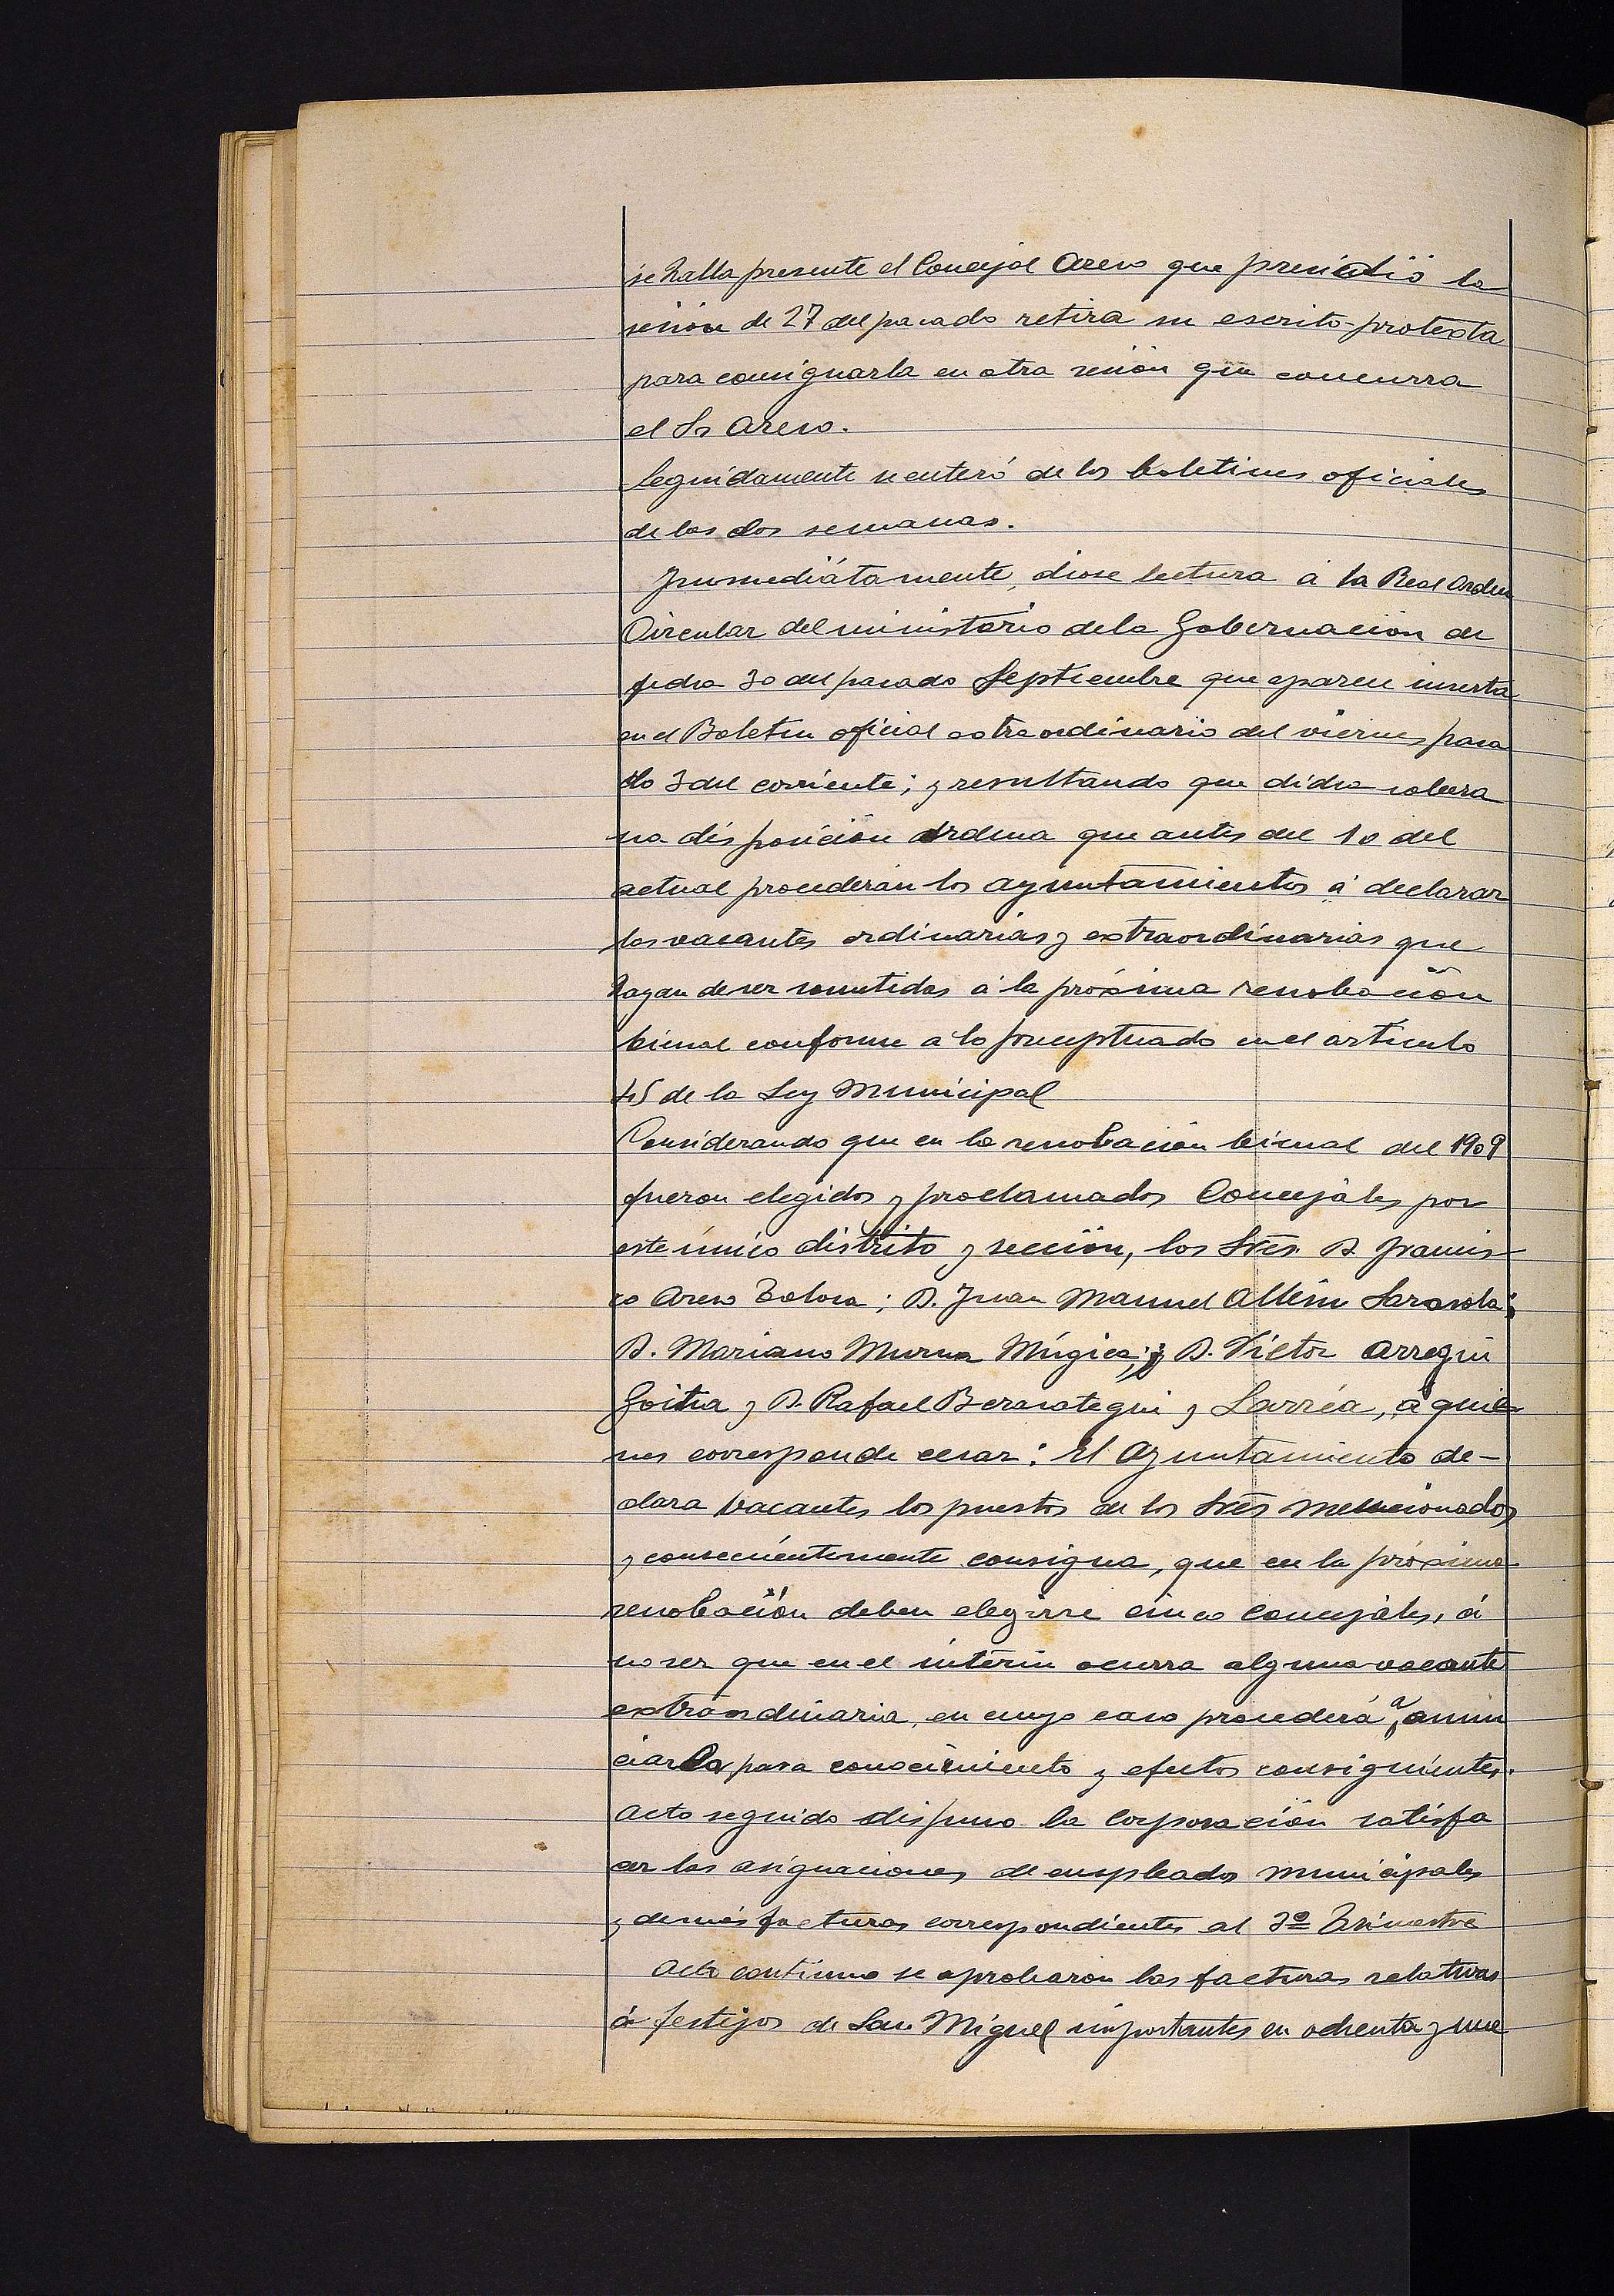 se halla presente el Concejal Areso que presidió la
sesion de 27 del pasado retira su escrito-protexta
para consignarla en otra sesión que concurra
el Sr Areso.
Seguidamente se enteró de los boletines oficiales
de las dos semanas.
Inmediátamente, diose lectura á la Real Orden
Circular del ministerio de la Gobernación de
fecha 30 del pasado Septiembre que aparece inserta
en el Boletin oficial extraordinario del viernes pasa
do 3 del corriente; y resultando que dicha sobera
na disposición ordena que antes del 10 del
actual procederán los ayuntamientos á declarar
las vacantes ordinarias y extraordinarias que
hayan de ser sometidas á la próxima renobación
bienal conforme a lo preceptuado en el articulo
45 de la Ley Municipal
Considerando que en la renobación bienal del 1909
fueron elegidos y proclamados Concejáles por
este único distrito y sección, los Sres. D. Francis-
co Areso Tolosa; D. Juan Manuel Altuna Sarasola;
D. Mariano Murua Múgica; D. Víctor Arregui
Goitia y D. Rafael Berasategui y Larréa, á quie-
nes corresponde cesar: El Ayuntamiento de-
clara vacantes los puestos de los Sres mencionados
y consecuentemente consigna, que en la próxima
renobación deben elegirse cinco concejáles, á
no ser que en el interin ocurra alguna vacante
extraordinaria, en cuyo caso procederá á anun
ciarla para conocimiento y efectos consiguientes.
Acto seguido dispuso la corporación satisfa
cer las asignaciones de empleados municipales
y demás facturas correspondientes al 3º Trimestre
Acto continuo se aprobaron las facturas relativas
á festejos de San Miguel importantes en ochenta y una